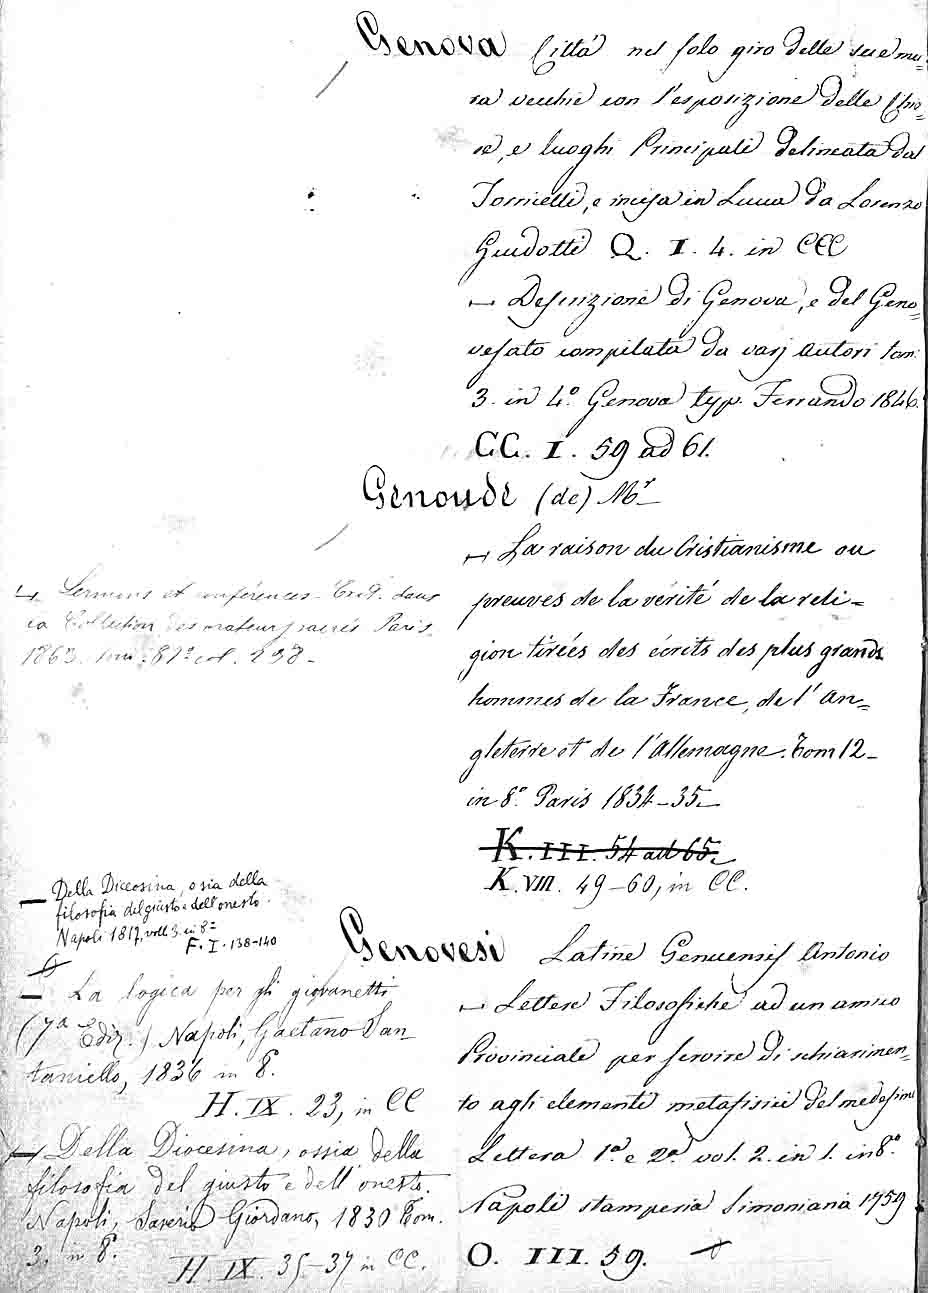 Genova Città nel solo giro delle sue mu=
ra vecchie con l'esposizione delle Chie=
se, e luoghi Principali delineata dal
Torricelli, e incisa in Lucca da Lorenzo
Guidotti Q. I. 4. in CCC
— Descrizione di Genova, e del Geno=
vesato compilata da varj autori tom:
3. in 4º. Genova typ. Ferrando 1846.
CC. I. 59 ad 61.
Genoude (de) Mr
— La raison du Cristianisme ou
preuves de la vérité de la reli=
gion tirées des écrits des plus grands
hommes de la France, de l'An=
gleterre et de l'Allemagne. Tom 12_
in 8º. Paris 1834-35_
K. III. 54 ad 65.
K. VIII. 49-60, in CC.
— Sermons et conférences. dans
la Collection des orateurs sacrés Paris.
1863. tom: 87º col.
— Della Diceosina, o sia della
filosofia del giusto e dell'onesto.
Napoli 1817, voll. 3. in 8º
F. I. 138-140
Genovesi Latine Genuensis Antonio
— Lettere Filosofiche ad un amico
Provinciale per servire di schiarimen=
to agli elementi metafisici del medesimo
Lettera 1ª. e 2ª. vol. 2. in 1. in 8º.
Napoli stamperia Simoniana 1759
O. III. 59.
— La logica per gli giovanetti
(7ª Ediz.) Napoli, Gaetano San_
taniello, 1836 in 8.
H. IX. 23, in CC
— Della Diocesina, ossia della
filosofia del giusto e dell'onesto.
Napoli, Saverio Giordano, 1830 Tom.
3. in 8.
H. IX. 35-37 in CC.